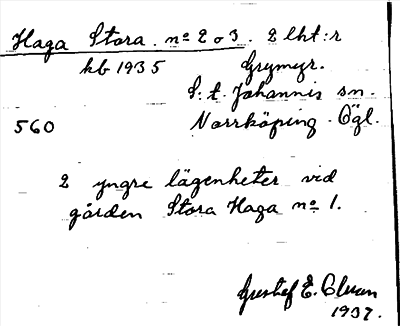 Haga Stora. nº 2 o 3. 2 lht:r
kb 1935
Grymyr.
S:t. Johannis sn.
560 Norrköping. Ögl.
2 yngre lägenheter vid
gården Stora Haga nº 1.
Gustaf E.
1937.